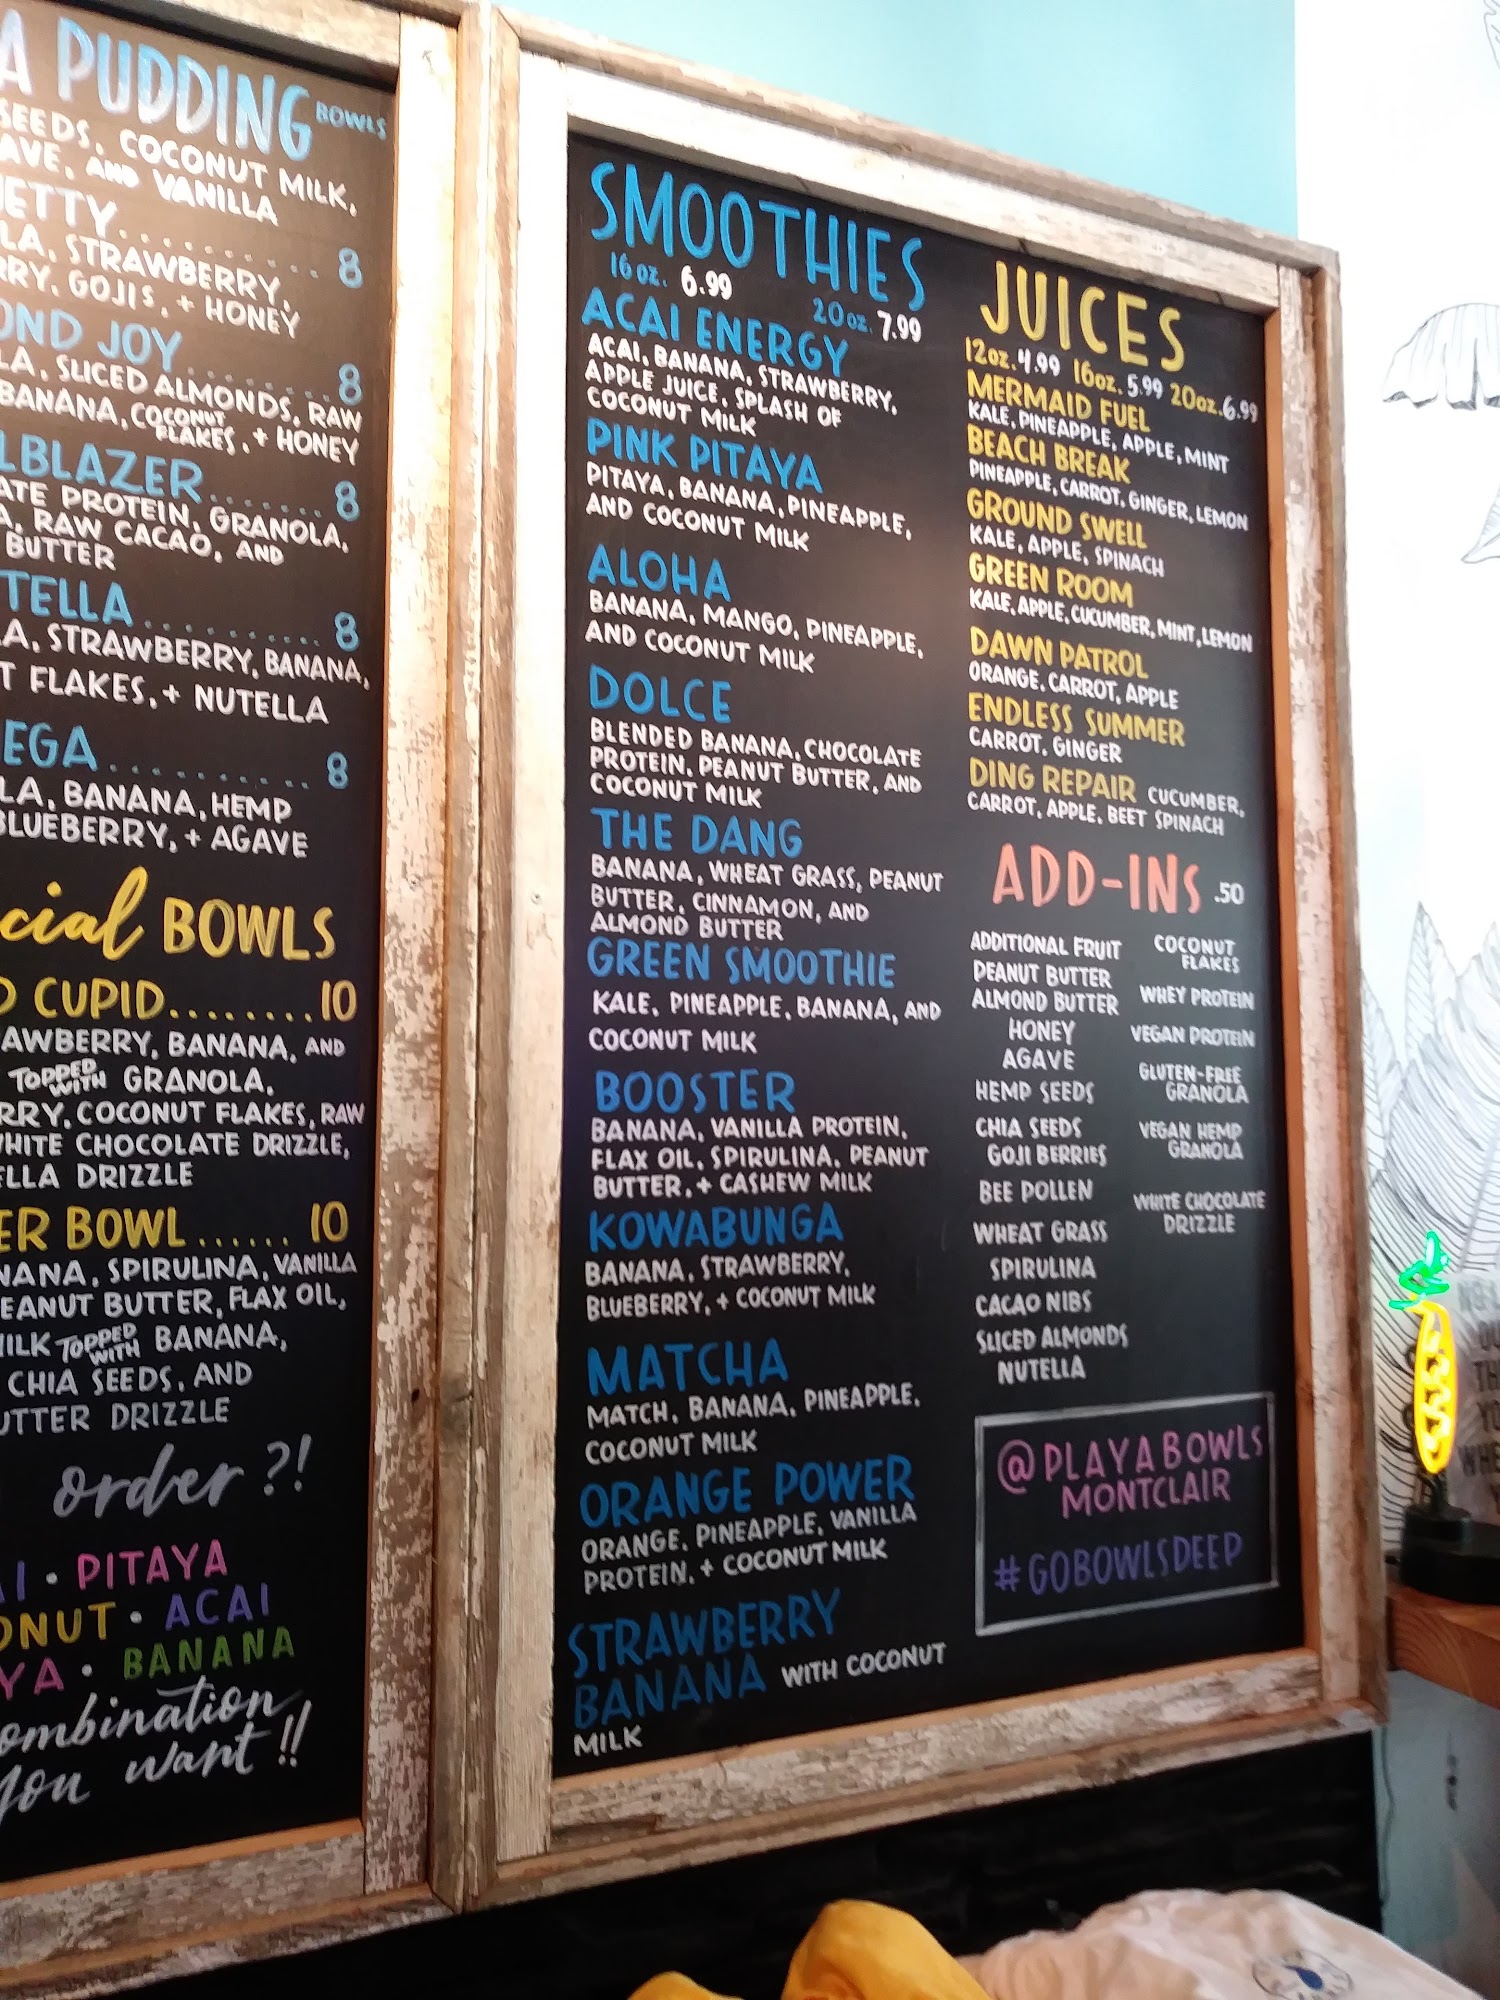 A PUDDING BOWLS
SEEDS, COCONUT MILK,
AVE, AND VANILLA
NETTY......... 8
LA, STRAWBERRY,
RRY, GOJIS, + HONEY
OND JOY....... 8
LA, SLICED ALMONDS, RAW
BANANA, COCONUT FLAKES, + HONEY
LBLAZER....... 8
ATE PROTEIN, GRANOLA,
A, RAW CACAO, AND
BUTTER
TELLA.......... 8
LA, STRAWBERRY, BANANA,
T FLAKES, + NUTELLA
EGA.......... 8
LA, BANANA, HEMP
BLUEBERRY, + AGAVE
cial BOWLS
D CUPID........10
AWBERRY, BANANA, AND
TOPPED WITH GRANOLA,
RRY, COCONUT FLAKES, RAW
WHITE CHOCOLATE DRIZZLE,
ELLA DRIZZLE
ER BOWL...... 10
NANA, SPIRULINA, VANILLA
EANUT BUTTER, FLAX OIL,
MILK TOPPED WITH BANANA,
CHIA SEEDS, AND
UTTER DRIZZLE
order?!
AI • PITAYA
ONUT • ACAI
YA • BANANA
ombination
you want!!
SMOOTHIES
16 oz. 6.99 20 oz. 7.99
ACAI ENERGY
ACAI, BANANA, STRAWBERRY,
APPLE JUICE, SPLASH OF
COCONUT MILK
PINK PITAYA
PITAYA, BANANA, PINEAPPLE,
AND COCONUT MILK
ALOHA
BANANA, MANGO, PINEAPPLE,
AND COCONUT MILK
DOLCE
BLENDED BANANA, CHOCOLATE
PROTEIN, PEANUT BUTTER, AND
COCONUT MILK
THE DANG
BANANA, WHEAT GRASS, PEANUT
BUTTER, CINNAMON, AND
ALMOND BUTTER
GREEN SMOOTHIE
KALE, PINEAPPLE, BANANA, AND
COCONUT MILK
BOOSTER
BANANA, VANILLA PROTEIN,
FLAX OIL, SPIRULINA, PEANUT
BUTTER, + CASHEW MILK
KOWABUNGA
BANANA, STRAWBERRY,
BLUEBERRY, + COCONUT MILK
MATCHA
MATCH, BANANA, PINEAPPLE,
COCONUT MILK
ORANGE POWER
ORANGE, PINEAPPLE, VANILLA
PROTEIN, + COCONUT MILK
STRAWBERRY
BANANA WITH COCONUT
MILK
JUICES
12oz. 4.99 16oz. 5.99 20oz. 6.99
MERMAID FUEL
KALE, PINEAPPLE, APPLE, MINT
BEACH BREAK
PINEAPPLE, CARROT, GINGER, LEMON
GROUND SWELL
KALE, APPLE, SPINACH
GREEN ROOM
KALE, APPLE, CUCUMBER, MINT, LEMON
DAWN PATROL
ORANGE, CARROT, APPLE
ENDLESS SUMMER
CARROT, GINGER
DING REPAIR CUCUMBER,
CARROT, APPLE, BEET SPINACH
ADD-INS .50
ADDITIONAL FRUIT
PEANUT BUTTER
ALMOND BUTTER
HONEY
AGAVE
HEMP SEEDS
CHIA SEEDS
GOJI BERRIES
BEE POLLEN
WHEAT GRASS
SPIRULINA
CACAO NIBS
SLICED ALMONDS
NUTELLA
COCONUT
FLAKES
WHEY PROTEIN
VEGAN PROTEIN
GLUTEN-FREE
GRANOLA
VEGAN HEMP
GRANOLA
WHITE CHOCOLATE
DRIZZLE
@PLAYABOWLS
MONTCLAIR
#GOBOWLSDEEP